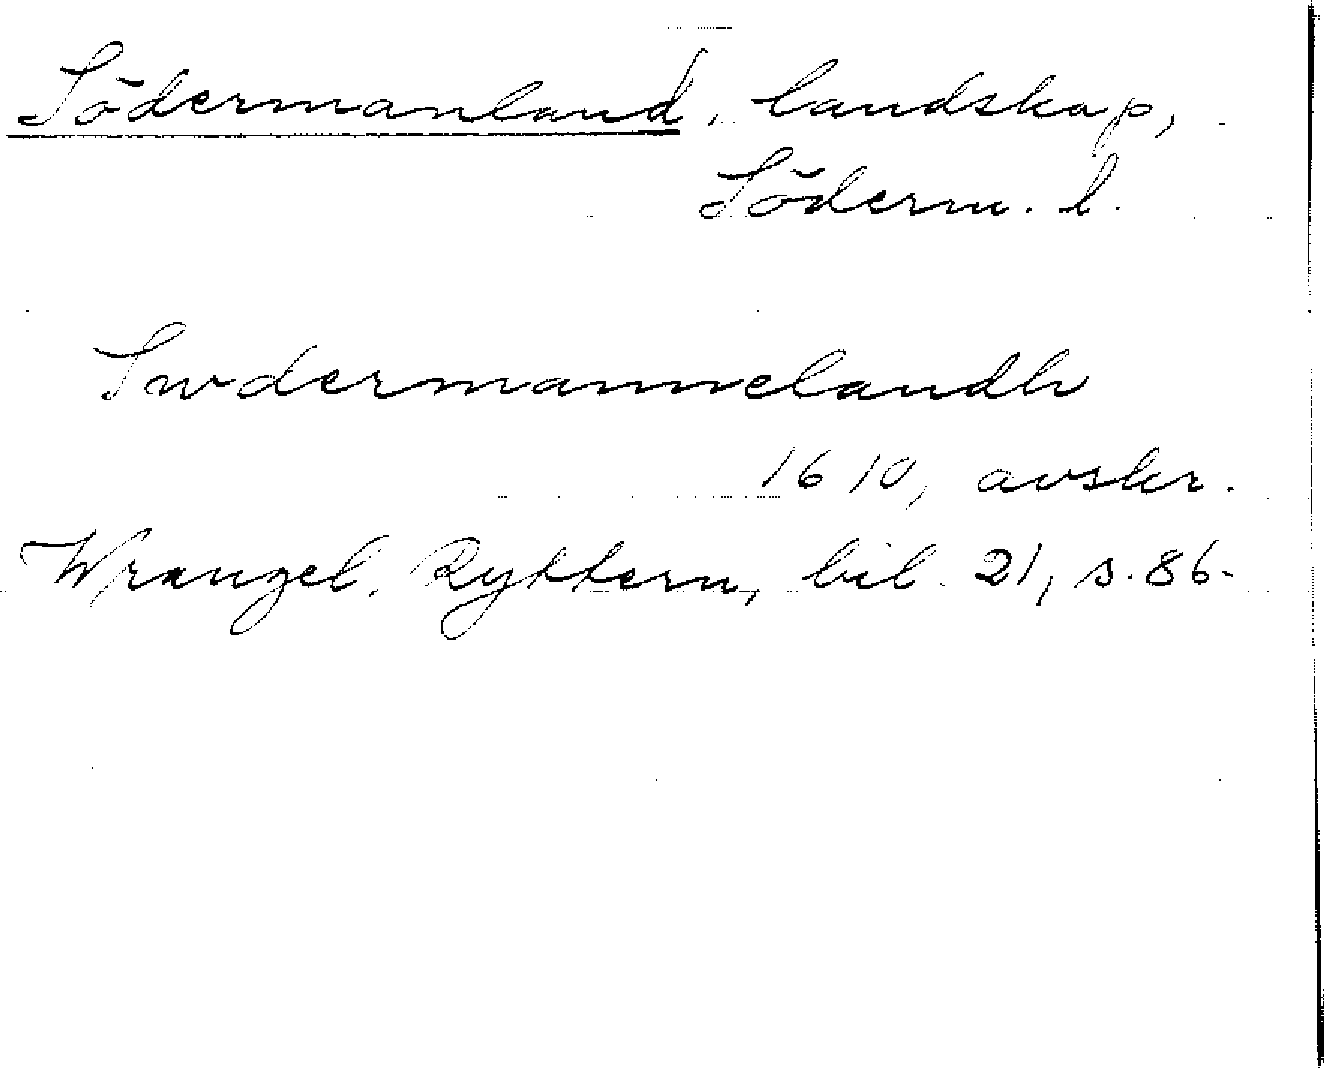 Södermanland, landskap,
Söderm. l.
Swdermannelandh
1610, avskr.
Wrangel, Ryttern, bil. 21, s. 86.